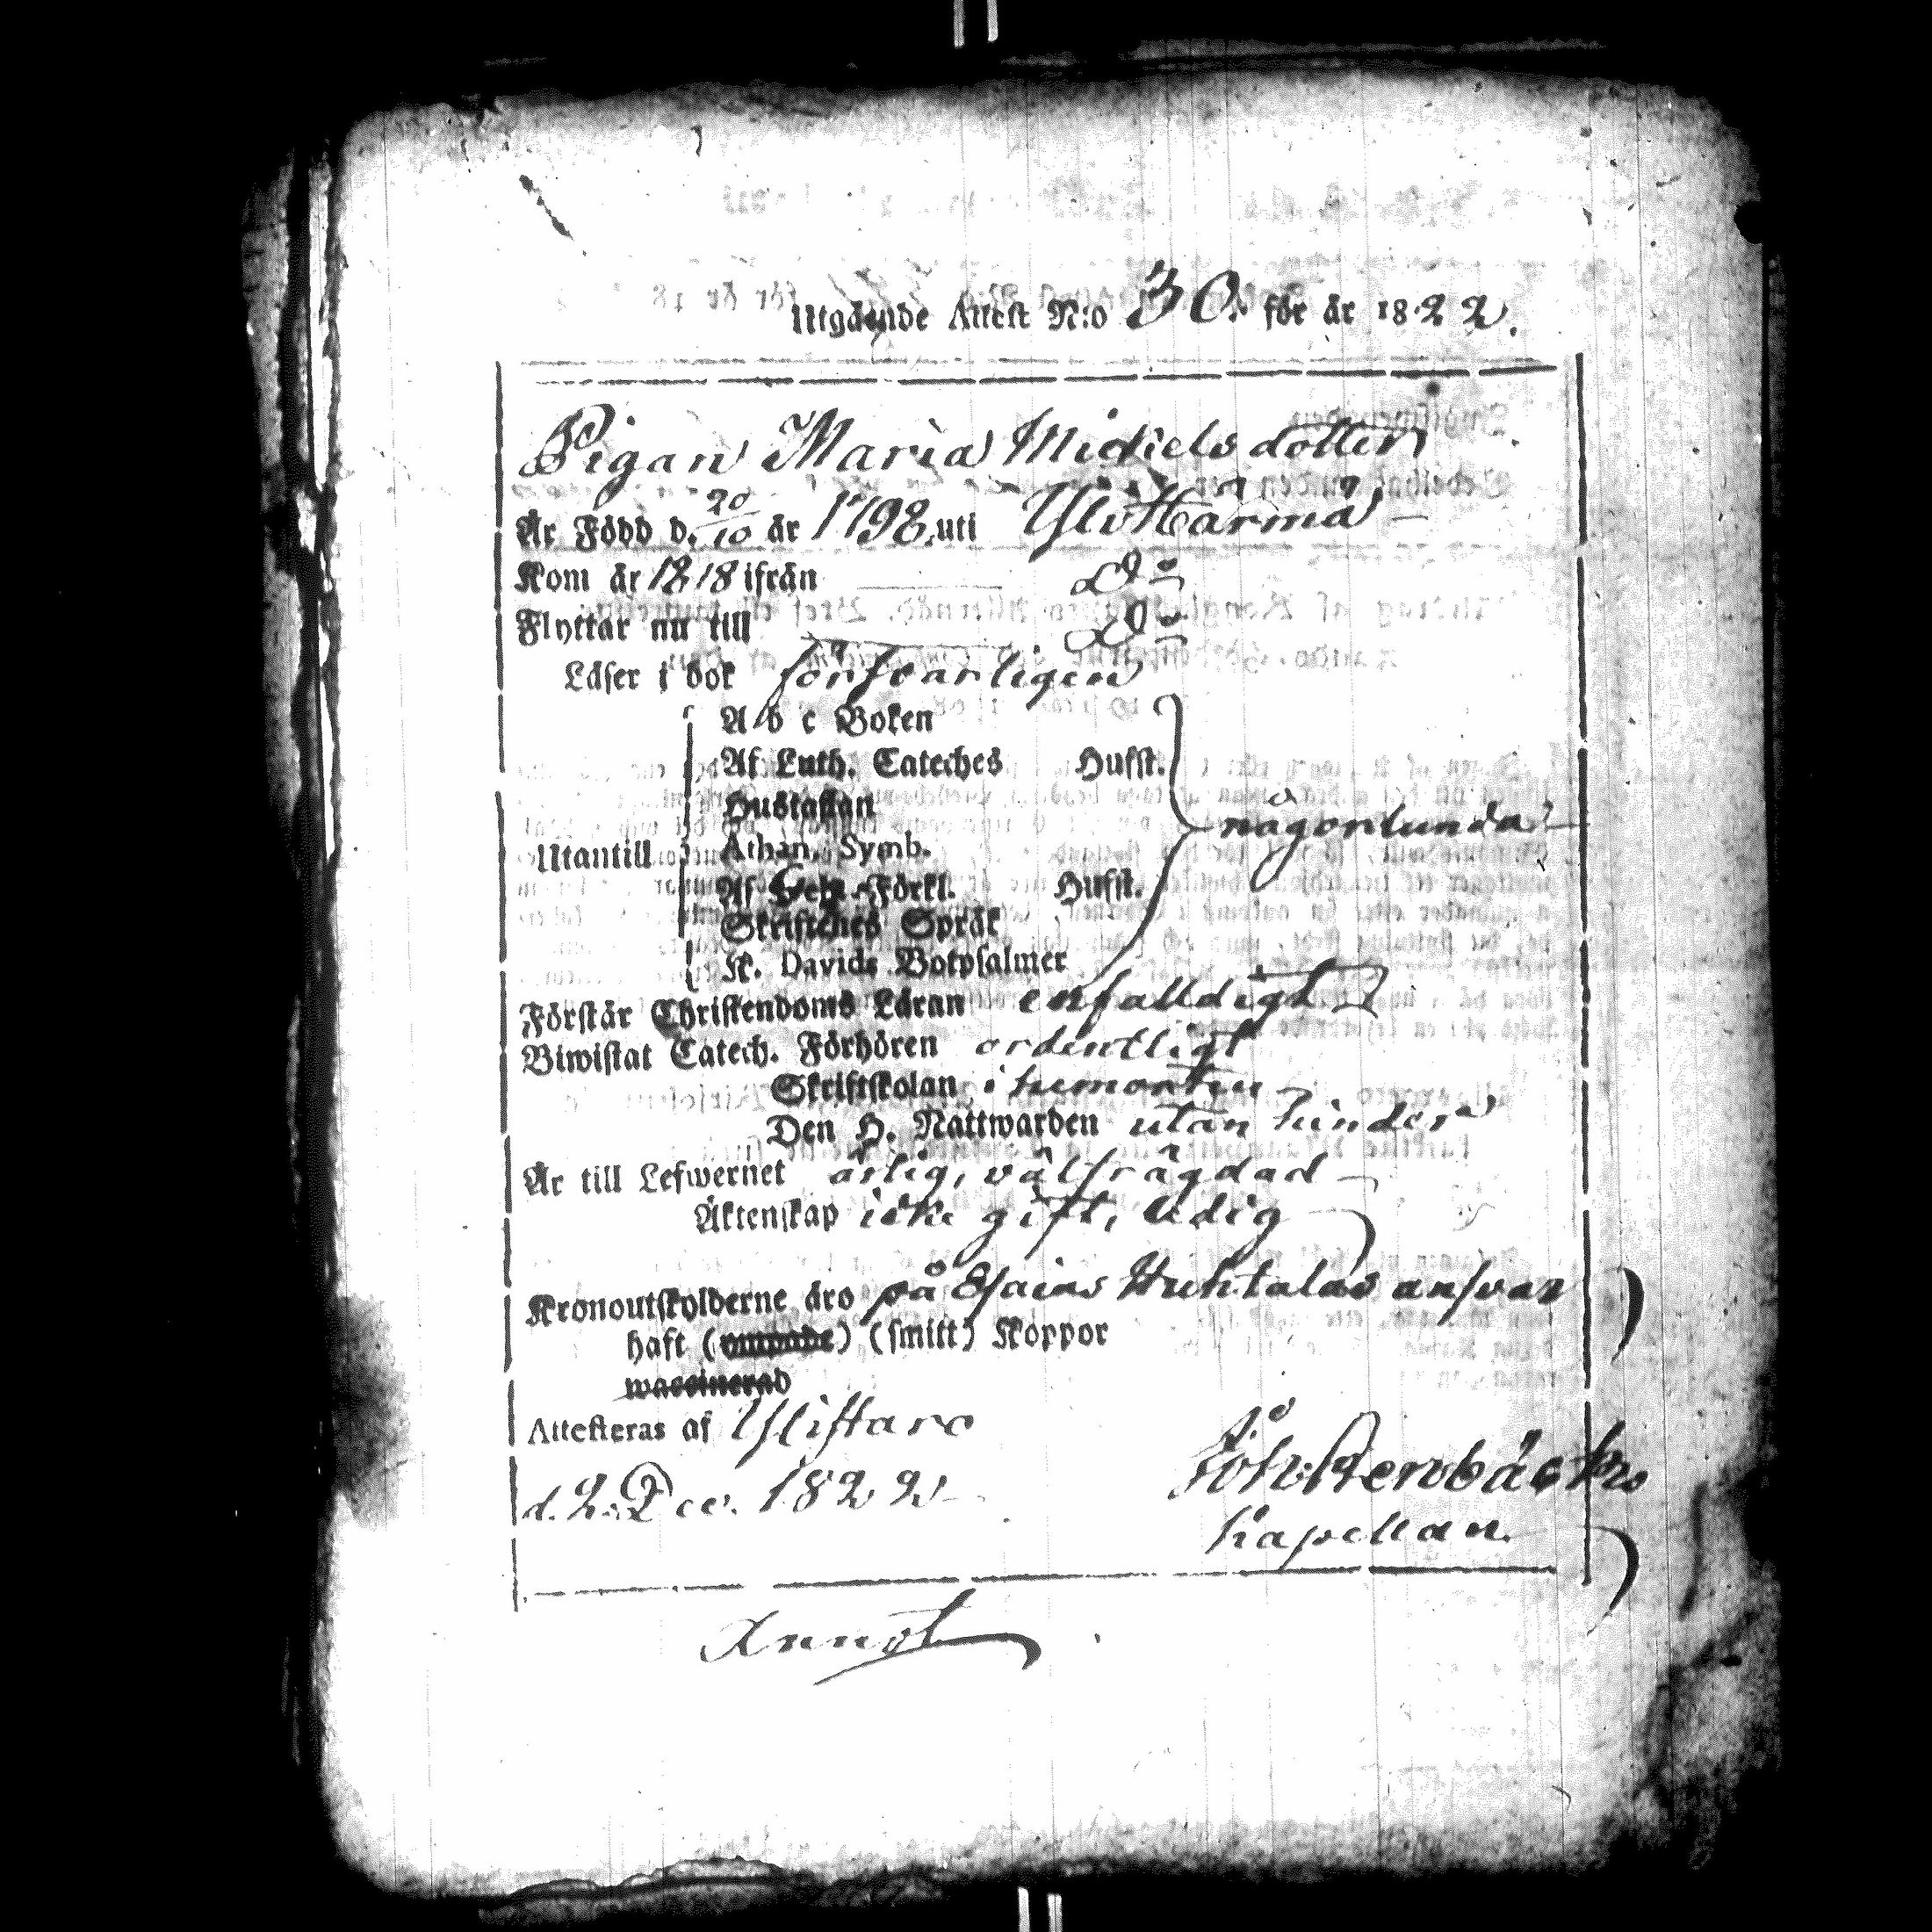 Utgående Attest N:o 30. för år 1822.
Pigan Maria Mickelsdotter
Är Född d. 20/10 år 1798, uti Ylihärmä
Kom år 1818 ifrån Do
Flyttar nu till Do
Läser i bok försvarligen
A b c Boken
Af Luth. Cateches Hufst.
Hustaflan
Utantill Athan. Symb. någorlunda
Af Förkl. Hufst.
Skriftenes Språk
K. Davids Botpsalmer
Förstår Christendoms Läran enfalldigt
Biwistat Catech. Förhören ordentligt
Skriftskolan i hemorten
Den H. Nattwarden utan hinder
Är till Lefwernet ärlig, välfrägdad
Äktenskap icke gift, ledig
Kronoutskylderne äro på Esaias Huhtalas ansvar
haft () (smitt) Koppor
waccinerad
Attesteras af Ylistaro
d. 2. Dec. 1822 Joh. Stenbäck
Kapellan.